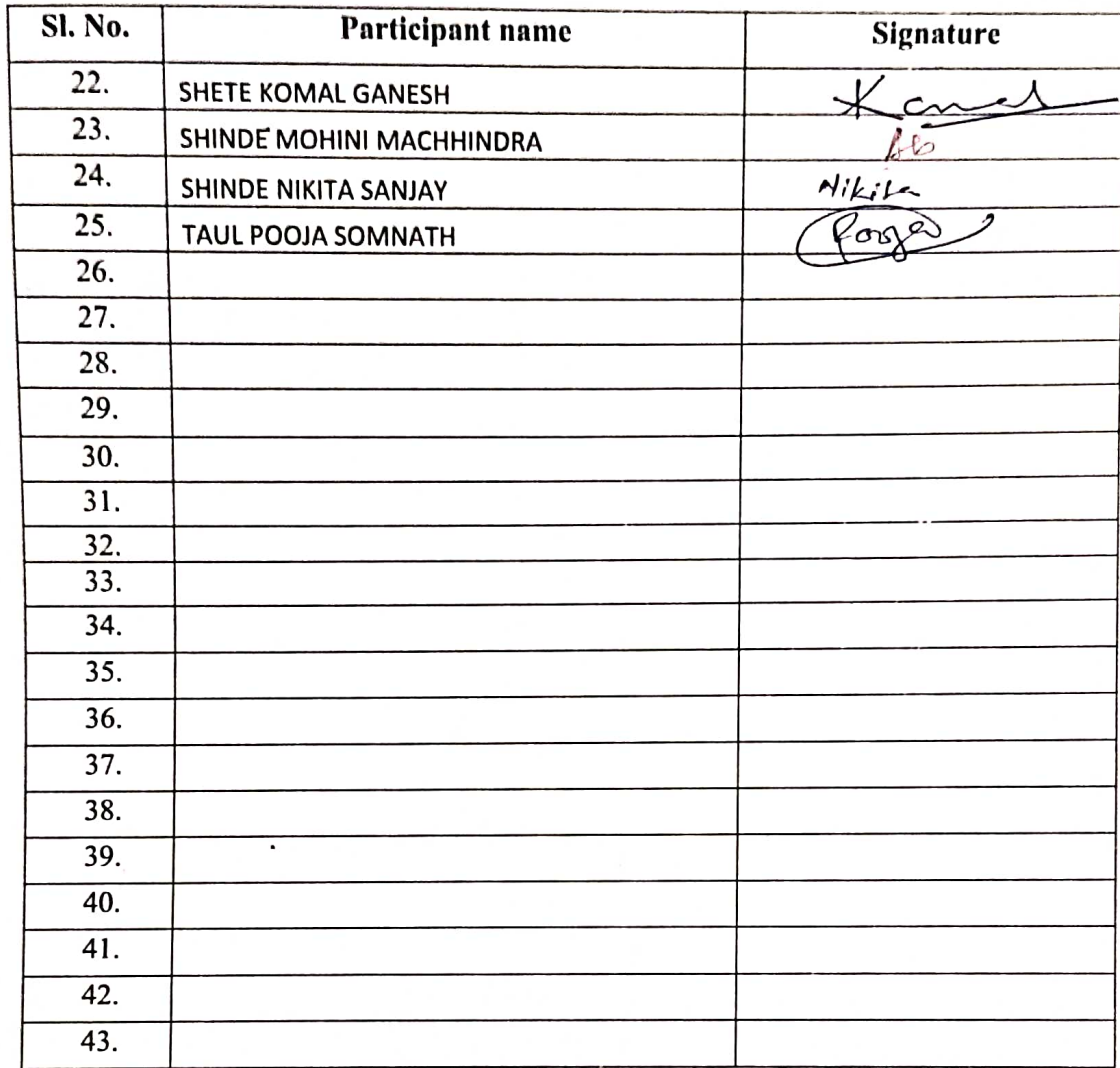 Sl. No. Participant name Signature
22. SHETE KOMAL GANESH Komal
23. SHINDE MOHINI MACHHINDRA Ab
24. SHINDE NIKITA SANJAY Nikita
25. TAUL POOJA SOMNATH Pooja
26.
27.
28.
29.
30.
31.
32.
33.
34.
35.
36.
37.
38.
39.
40.
41.
42.
43.